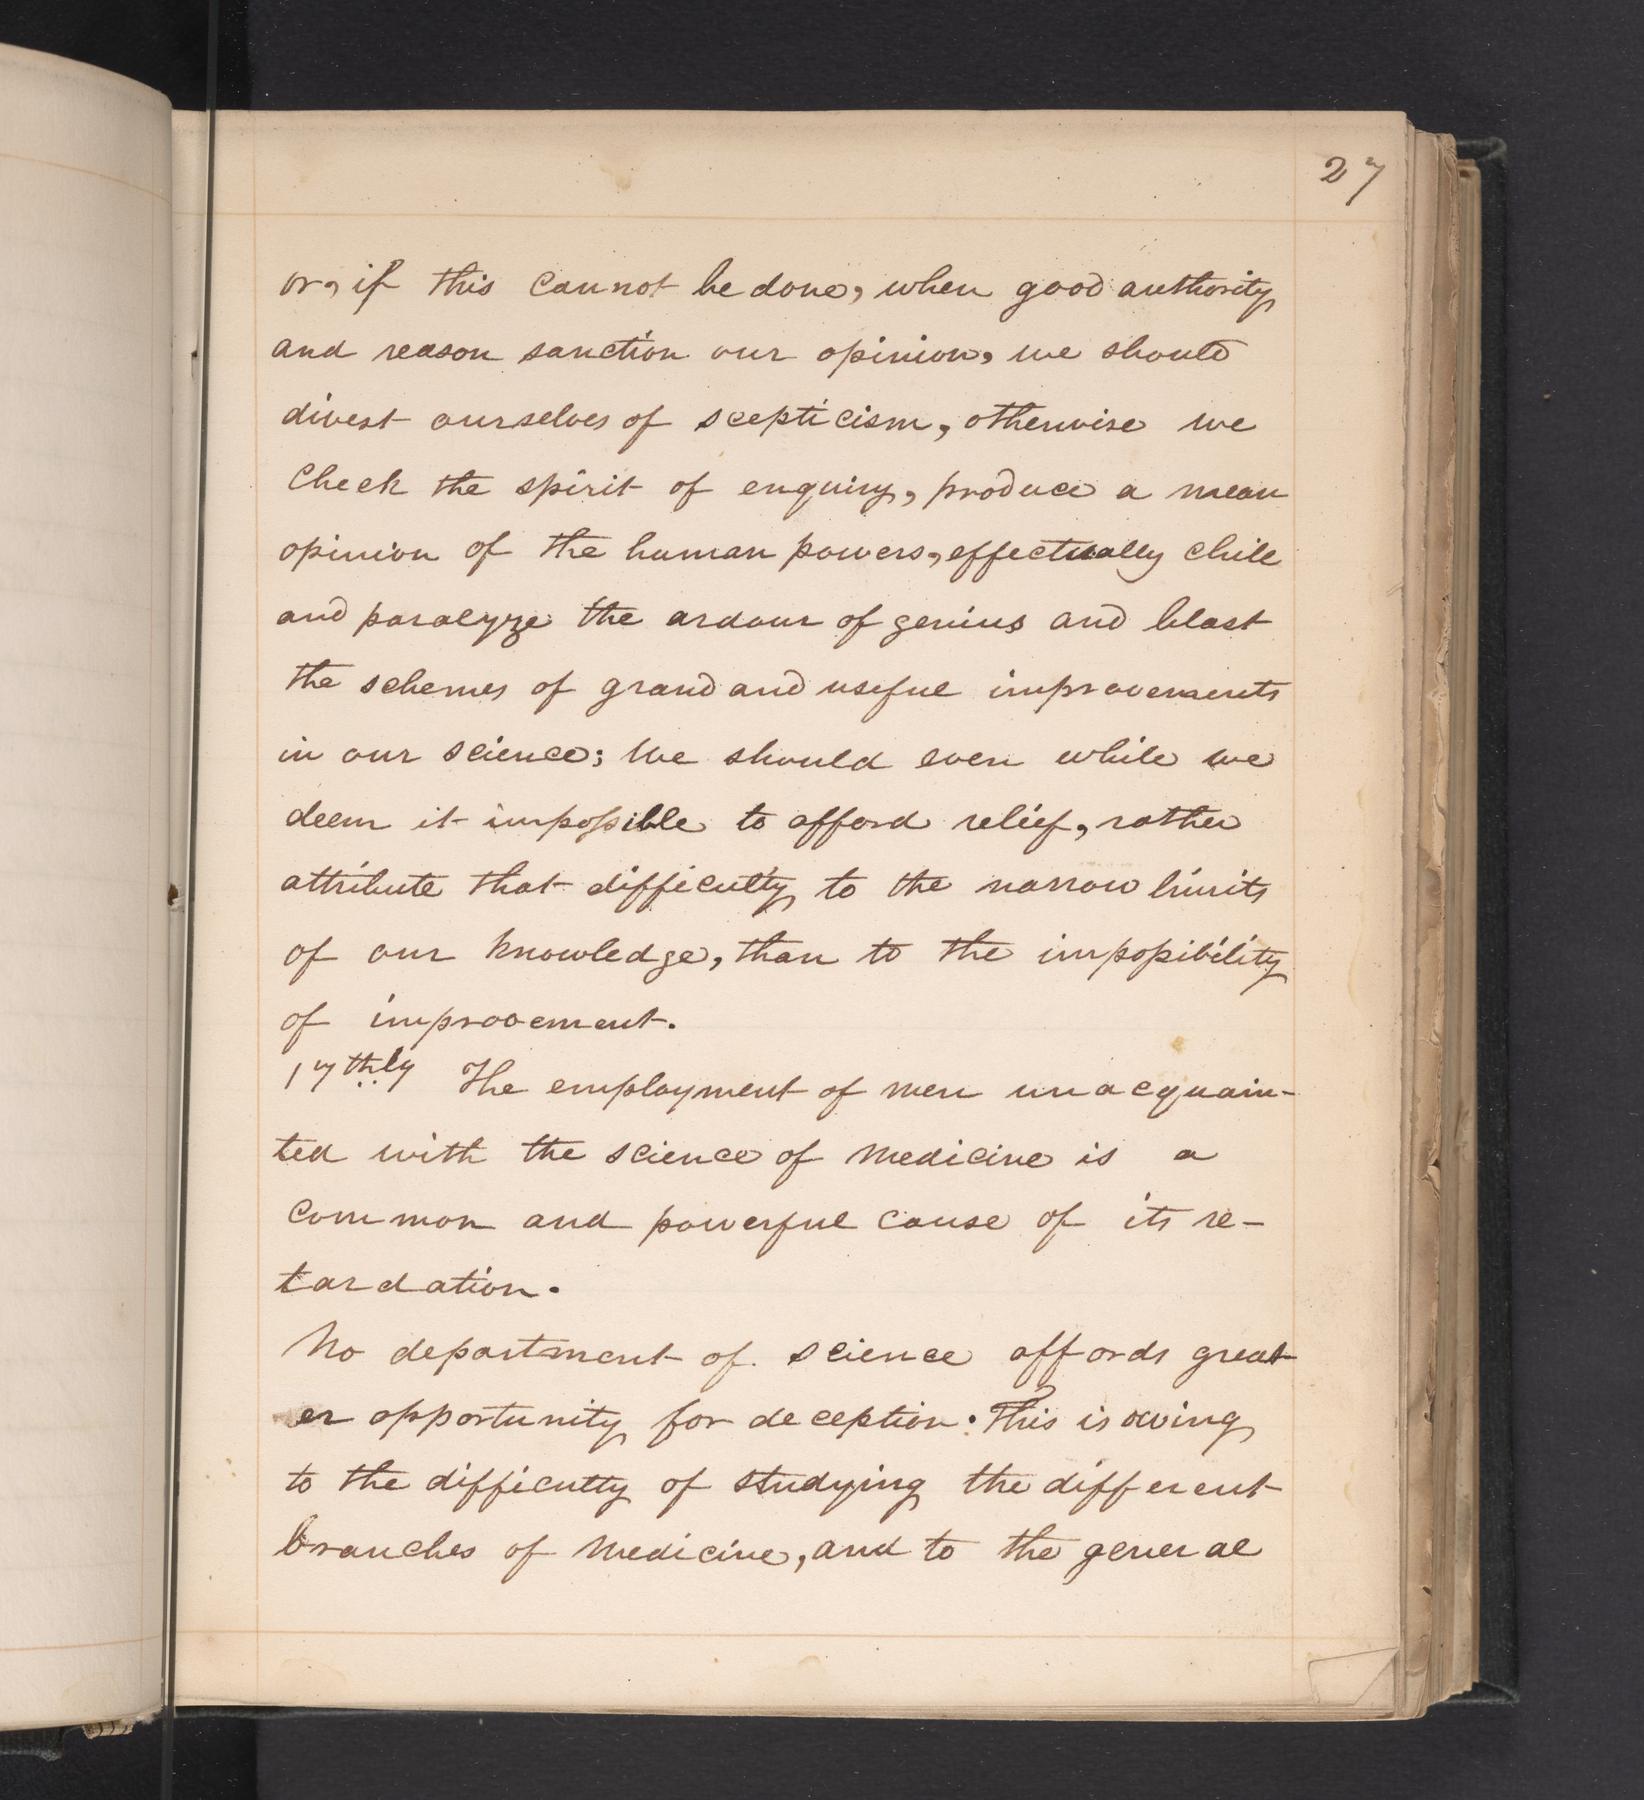 27
or, if this cannot be done, when good authority
and reason sanction our opinion, we should
divest ourselves of scepticism, otherwise we
check the spirit of enquiry, produce a mean
opinion of the human powers, effectually chill
and paralyze the ardour of genius and blast
the schemes of grand and useful improvements
in our science; We should even while we
deem it impossible to afford relief, rather
attribute that difficulty to the narrow limits
of our knowledge, than to the impossibility
of improvement.
17thly The employment of men unacquain-
ted with the science of Medicine is a
common and powerful cause of its re-
tardation.
No department of science affords great
er opportunity for deception. This is owing
to the difficulty of studying the different
branches of Medicine, and to the general